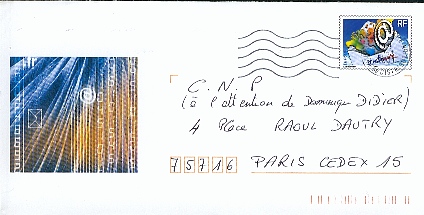 RF
@
@
C.N.P
(à l'attention de Dominique DIDIER)
4 Place RAOUL DAUTRY
75716 PARIS CEDEX 15